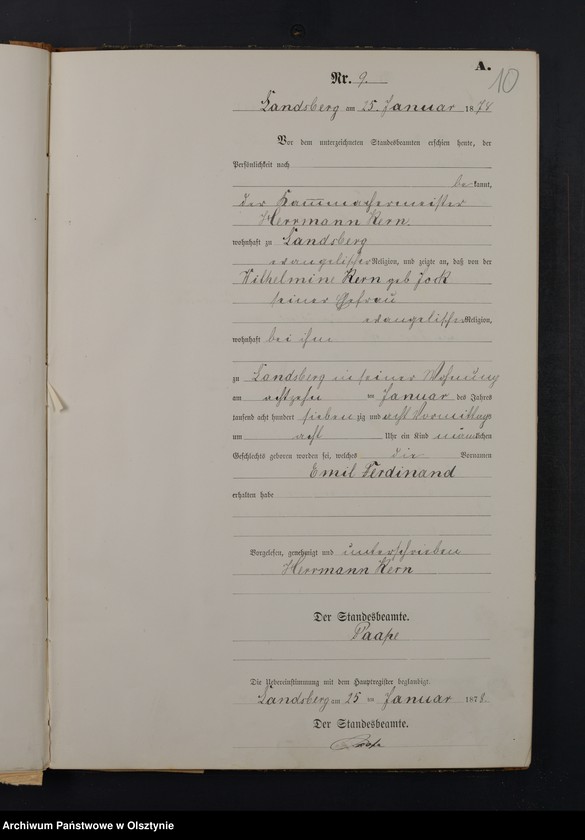 A.
10
Nr. 9.
Landsberg am 25. Januar 1878
Vor dem unterzeichneten Standesbeamten erschien heute, der
Persönlichkeit nach
bekannt,
der Kammachermeister
Herrmann Kern.
wohnhaft zu Landsberg
evangelischer Religion, und zeigte an, daß von der
Wilhelmine Kern geb Jock
seiner Ehefrau
evangelischer Religion,
wohnhaft bei ihm
zu Landsberg in seiner Wohnung
am achtzehn ten Januar des Jahres
tausend acht hundert sieben zig und acht Vormittags
um acht Uhr ein Kind männlichen
Geschlechts geboren worden sei, welches die Vornamen
Emil Ferdinand
erhalten habe
Vorgelesen, genehmigt und unterschrieben
Herrmann Kern
Der Standesbeamte.
Paape
Die Uebereinstimmung mit dem Hauptregister beglaubigt.
Landsberg am 25 ten Januar 1878.
Der Standesbeamte.
Paape
Archiwum Państwowe w Olsztynie